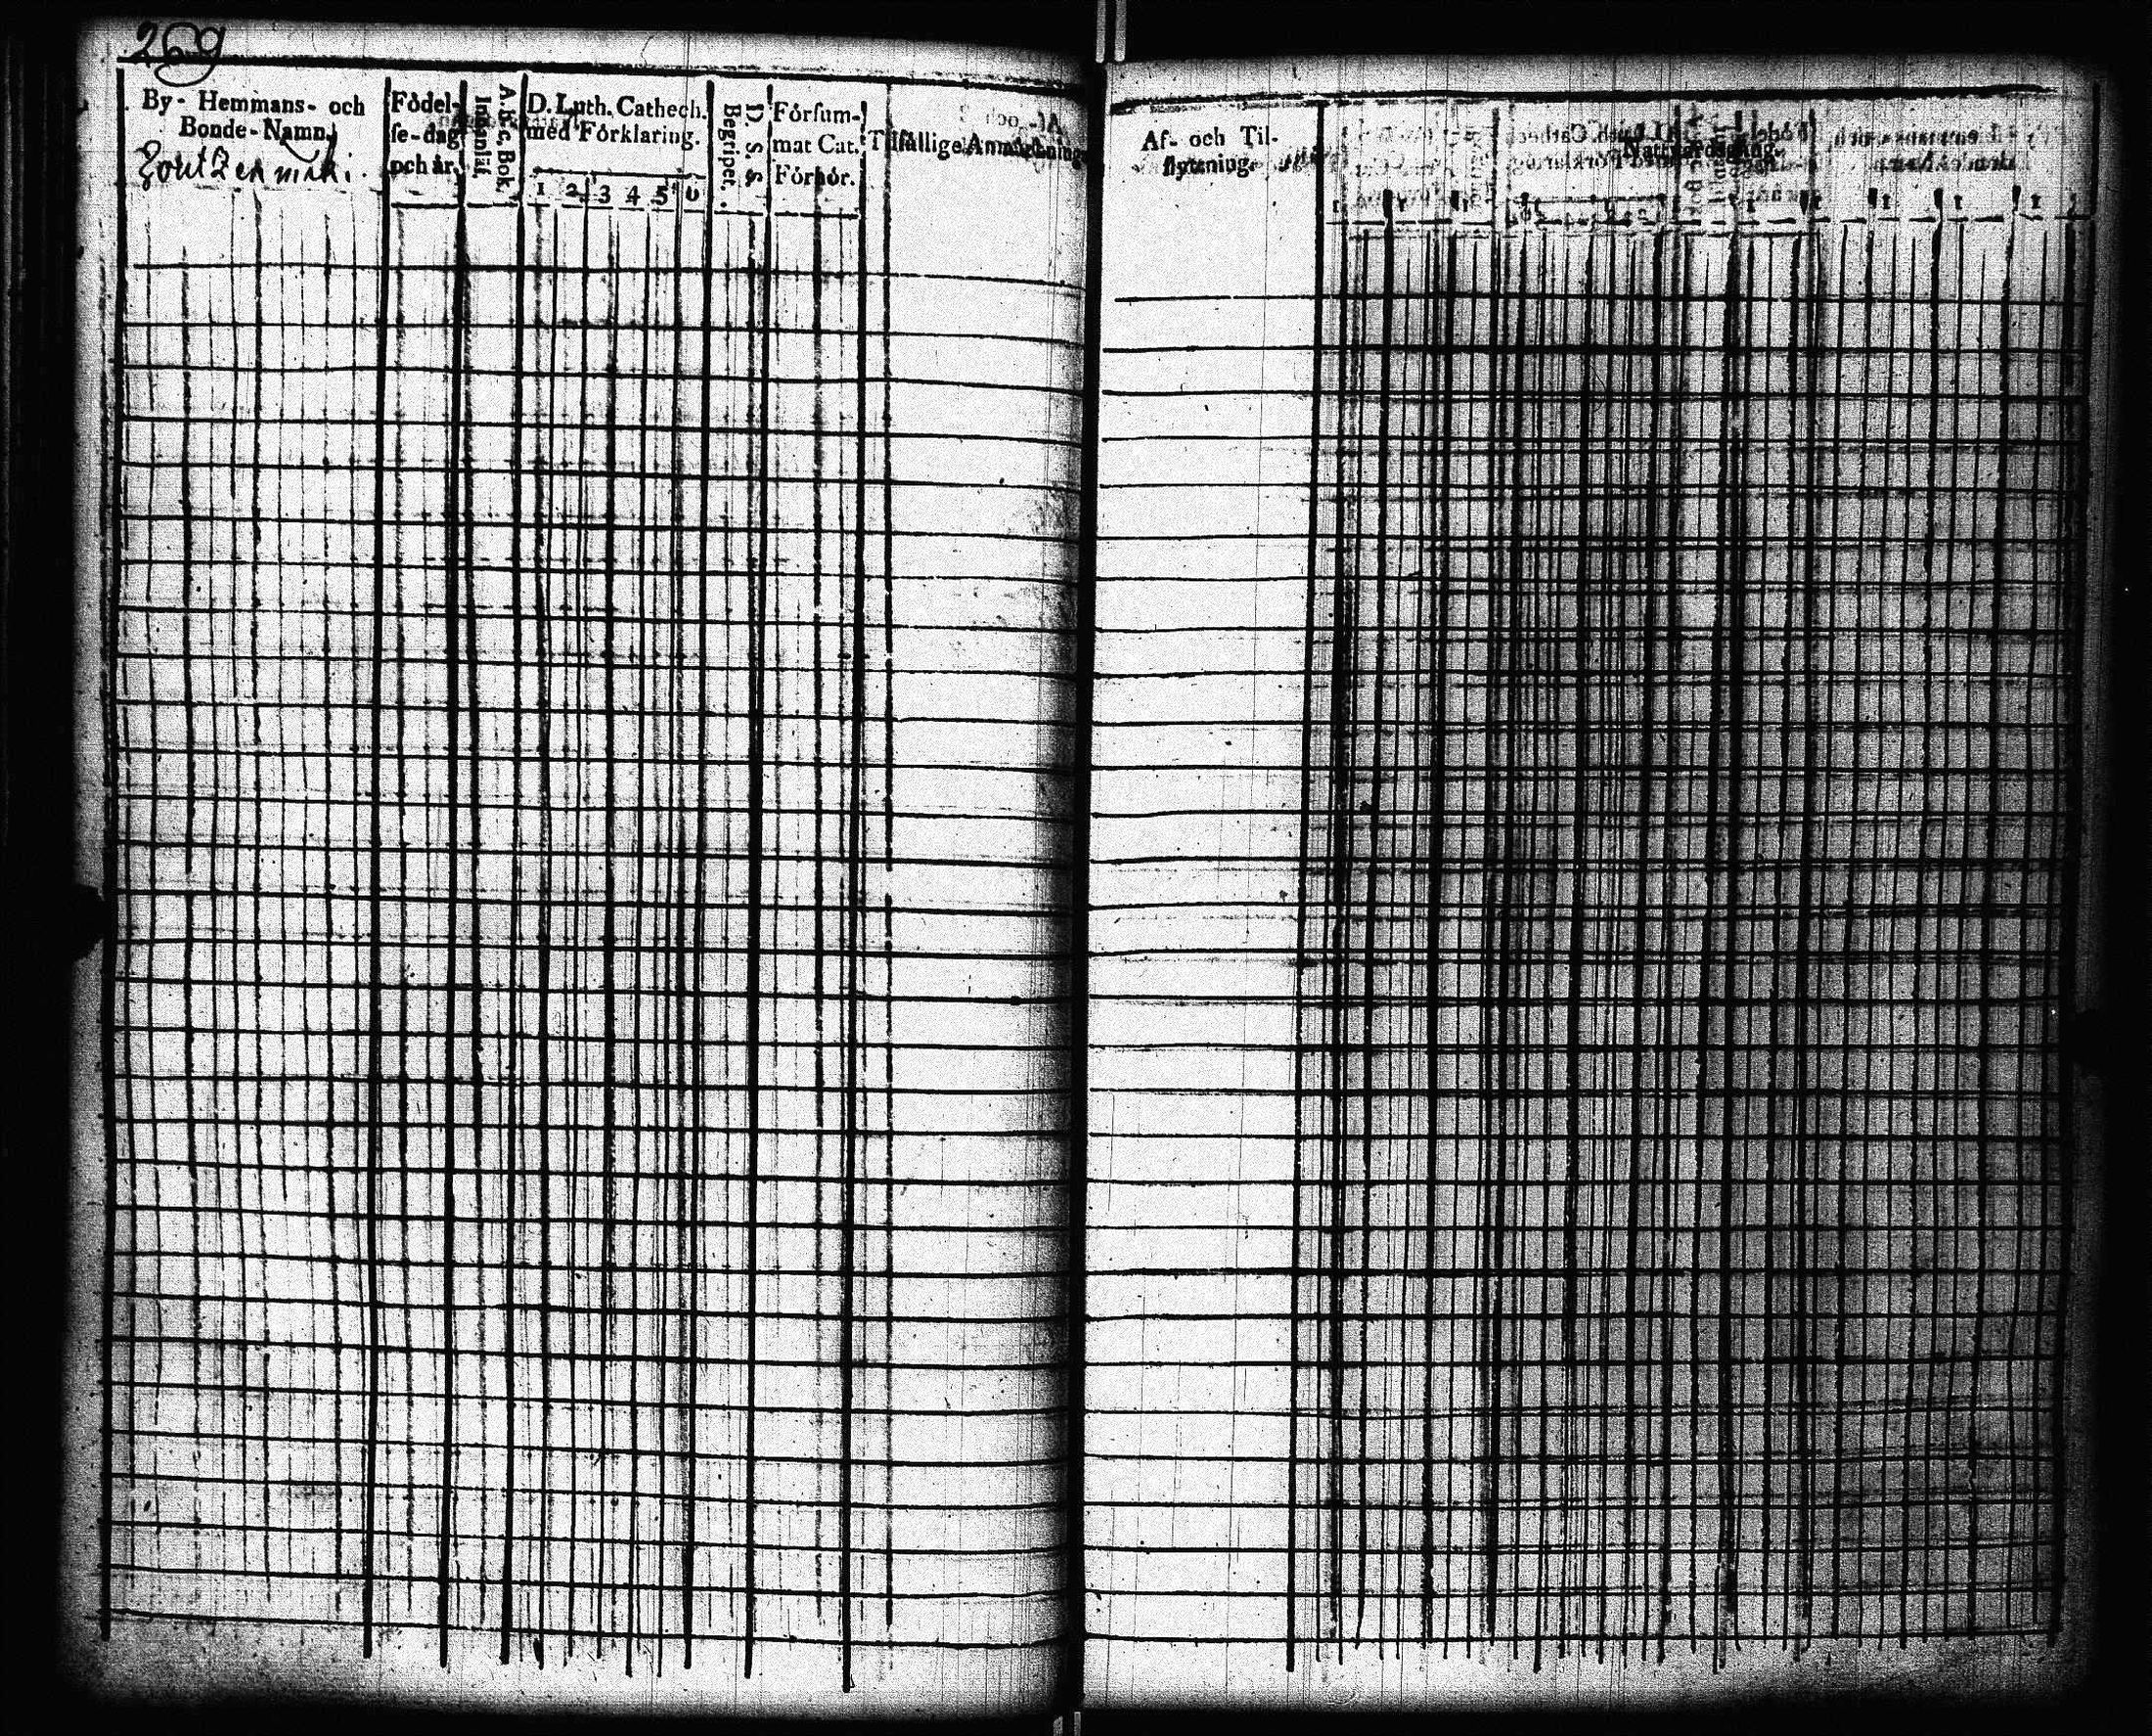 269
By- Hemmans- och
Bonde-Namn.
Födel-
se-dag
och år.
A.B.c, Bok.
Innanläs
D. Luth. Cathech.
med Förklaring.
1 2 3 4 5 6
D. S. S.
Begripet.
Försum-
mat Cat.
Förhör.
Tilfällige Anmärkning
Af- och Til-
flyttning.
Nattvardsgång.